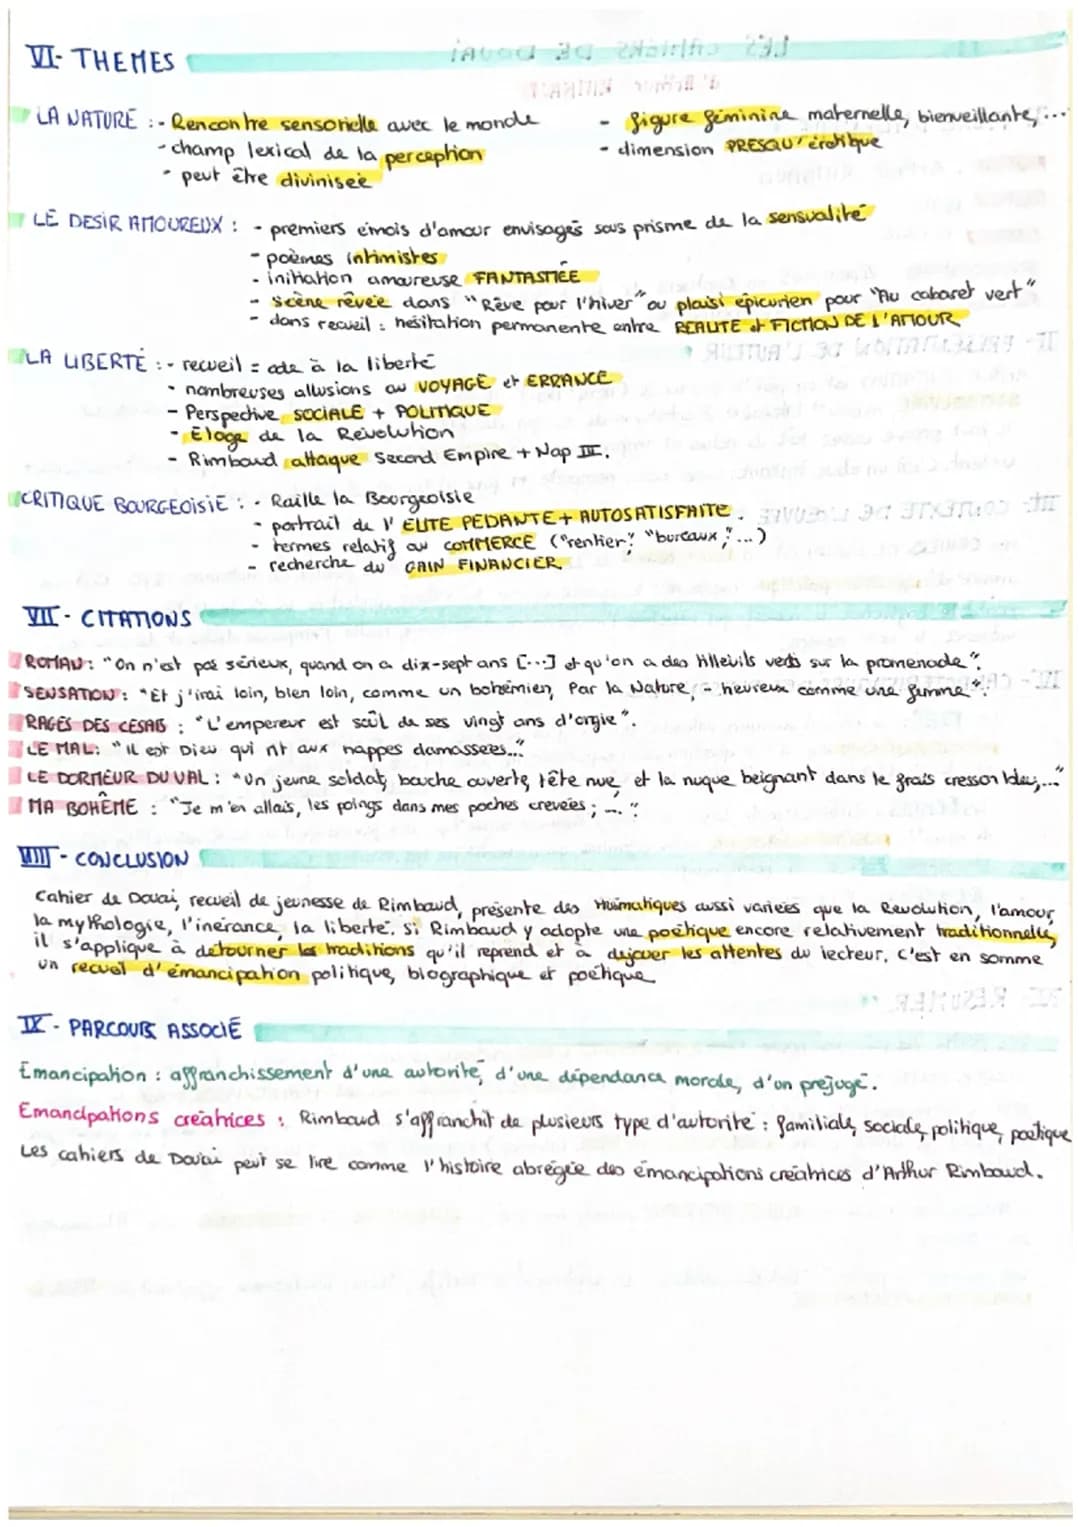 VI- THEMES
LA NATURE : - Rencontre sensorielle avec le monde
- champ lexical de la perception
- peut être divinisée
- figure féminine maternelle, bienveillante,...
- dimension PRESQU'érotique
LE DESIR AMOUREUX : - premiers émois d'amour envisagés sous prisme de la sensualité
- poèmes intimistes
- initiation amoureuse FANTASMÉE
- scène rêvée dans "Rêve pour l'hiver" ou plaisi épicurien pour "Au cabaret vert"
- dans recueil : hésitation permanente entre REALITE et FICTION DE L'AMOUR
LA LIBERTÉ : - recueil = ode à la liberté
- nombreuses allusions au VOYAGE et ERRANCE
- Perspective SOCIALE + POLITIQUE
- Éloge de la Révolution
- Rimbaud attaque Second Empire + Nap III.
CRITIQUE BOURGEOISIE : - Raille la Bourgeoisie
- portrait de l'ELITE PEDANTE + AUTOSATISFAITE.
- termes relatif au COMMERCE ("rentier", "bureaux", ...)
- recherche du GAIN FINANCIER
VII - CITATIONS
ROMAN : "On n'est pas sérieux, quand on a dix-sept ans [...] et qu'on a des tilleuils verts sur la promenade".
SENSATION : "Et j'irai loin, bien loin, comme un bohémien, Par la Nature, - heureux comme une femme".
RAGES DES CESARS : "L'empereur est soûl de ses vingt ans d'orgie".
LE MAL : "il est Dieu qui rit aux nappes damassées..."
LE DORMEUR DU VAL : "Un jeune soldat, bouche ouverte, tête nue, et la nuque beignant dans le frais cresson bleu,..."
MA BOHÊME : "Je m'en allais, les poings dans mes poches crevées ; ... "
VIII - CONCLUSION
Cahier de Douai, recueil de jeunesse de Rimbaud, présente des thématiques aussi variées que la Révolution, l'amour,
la mythologie, l'inérance, la liberté. Si Rimbaud y adopte une poétique encore relativement traditionnelle,
il s'applique à détourner les traditions qu'il reprend et à déjouer les attentes du lecteur, c'est en somme
un recueil d'émancipation politique, biographique et poétique
IX - PARCOURS ASSOCIÉ
Emancipation : affranchissement d'une autorité, d'une dépendance morale, d'un préjugé.
Emancipations créatrices : Rimbaud s'affranchit de plusieurs type d'autorité : familiale, sociale, politique, poétique
Les cahiers de Douai peut se lire comme l'histoire abrégée des émancipations créatrices d'Arthur Rimbaud.